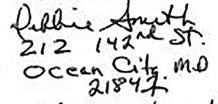 Debbie Smyth
212 142nd St.
Ocean City, MD
21842